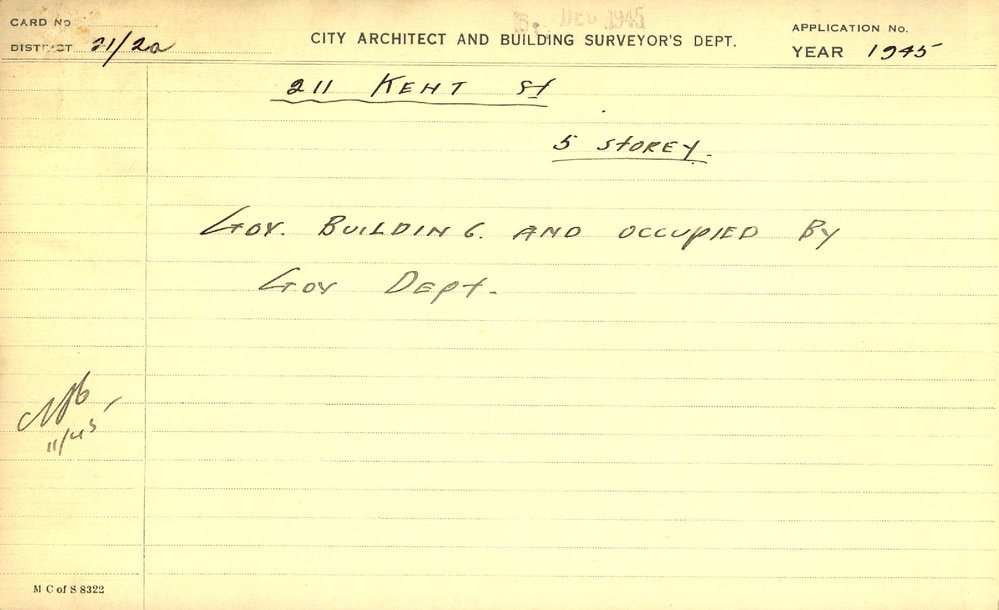 CARD No
DEC 1945
CITY ARCHITECT AND BUILDING SURVEYOR'S DEPT.
APPLICATION No.
DISTRICT 21/2a
YEAR 1945
211 KENT St
5 STOREY.
GOV. BUILDING. AND OCCUPIED BY
GOV DEPT.
11/45
M C of S 8322